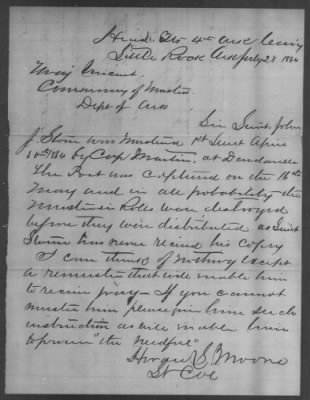 Head Qts 4th Ark Cavy
Little Rock Ark July 28 1864
Maj
Commissary of Musters
Dept of Ark
Sir Lieut John
J. was Mustered 1st Lieut April
1864 by Capt Martin, at Dardanelle
The Post was captured on the 16th
May and in all probability the
Musterin Rolls were destroyed
before they were distributed as Lieut
has never received his copy
I can think of nothing except
a remuster that will enable him
to receive pay - If you cannot
muster him please give him such
instruction as will enable him
to procure "the needful"
S. Moore
Lt Col